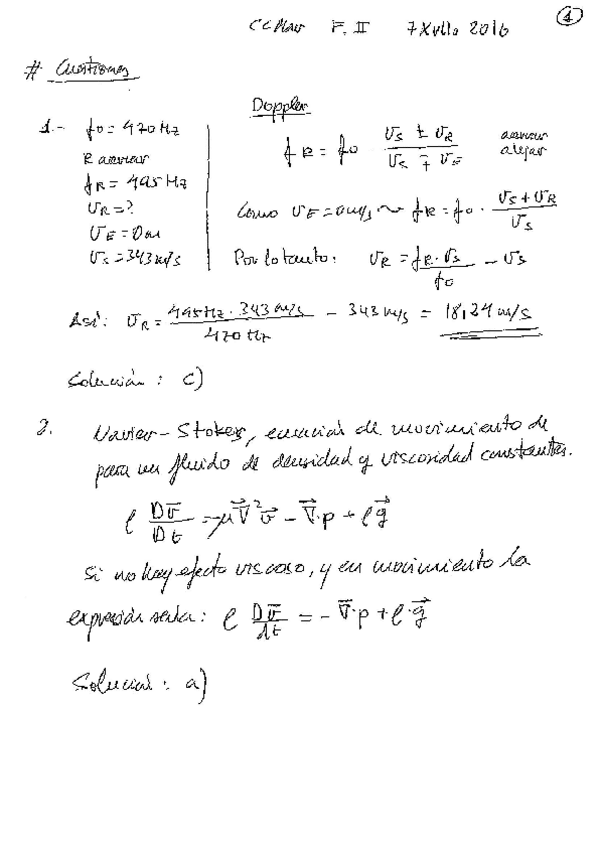 CC Mar F. II 7 Xullo 2016 1
# Cuestiones
Doppler
1.- f0 = 470 Hz
R acercar
fR = 495 Hz
vR = ?
vE = 0 m
vS = 343 m/s
fR = f0 · (vS ± vR) / (vS ∓ vE) acercar alejar
Como vE = 0 m/s ~> fR = f0 · (vS + vR) / vS
Por lo tanto: vR = (fR · vS) / f0 - vS
Así: vR = (495 Hz · 343 m/s) / 470 Hz - 343 m/s = 18,24 m/s
Solución: c)
2. Navier-Stokes, ecuación de movimiento de
para un fluido de densidad y viscosidad constantes.
ρ Dv̄/Dt = μ∇⃗²v̄ - ∇⃗·p + ρg⃗
Si no hay efecto viscoso, y en movimiento la
expresión sería: ρ Dv̄/dt = - ∇̄·p + ρ·g⃗
Solución: a)